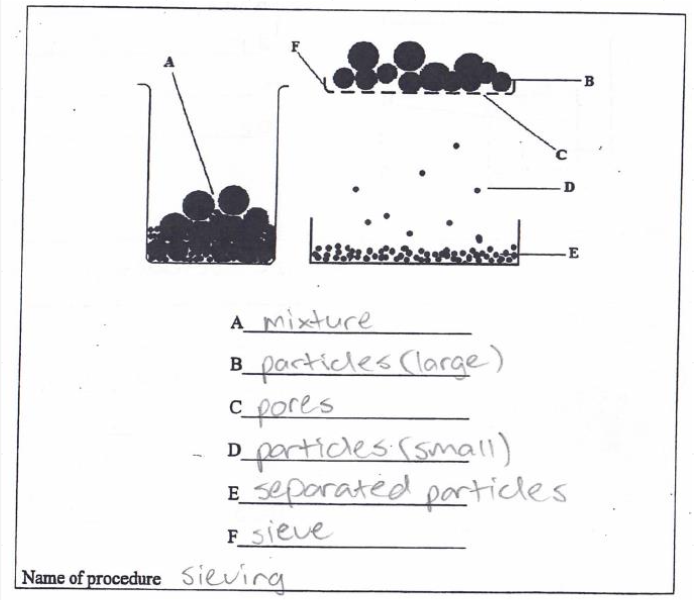 F
A
B
C
D
E
A mixture
B particles (large)
C pores
D particles (small)
E separated particles
F sieve
Name of procedure sieving